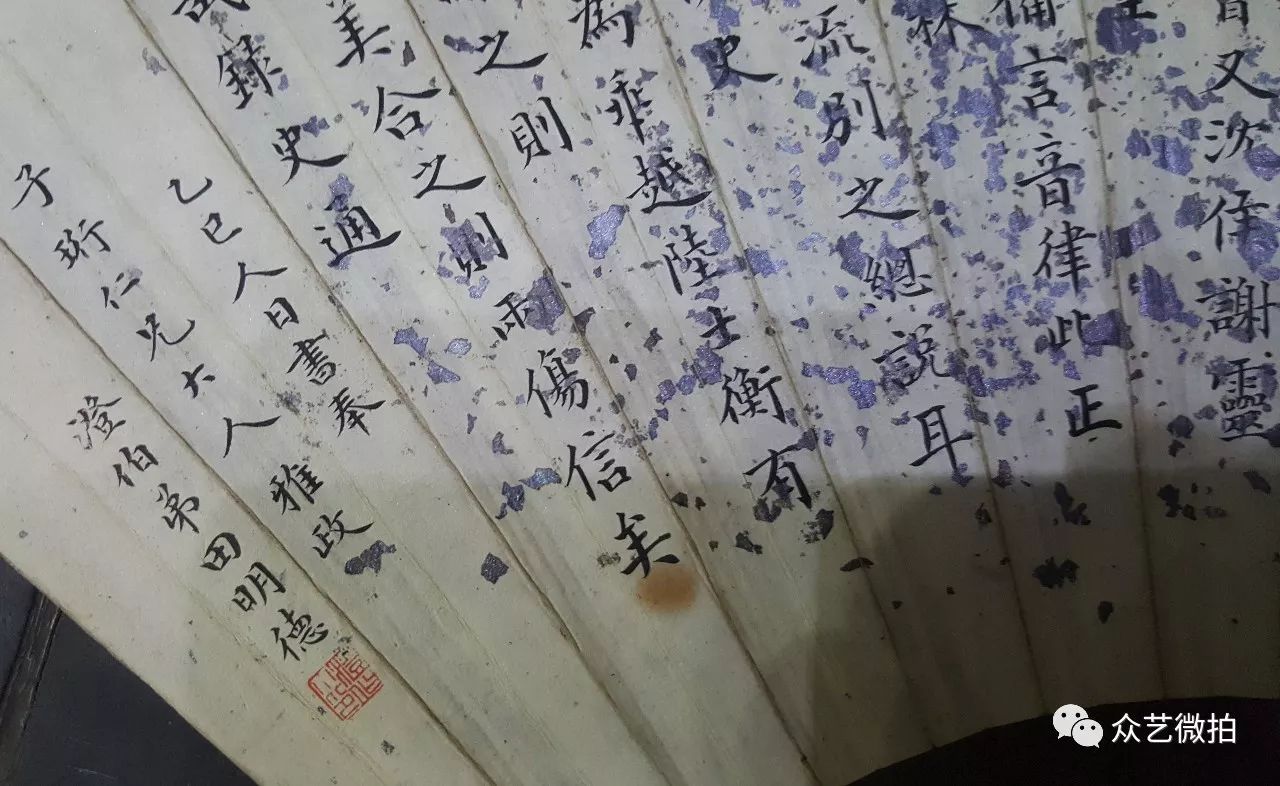 又沈侔謝靈
言音律此正
流別之總說耳
史
為乖越陸士衡有
之則
美合之則兩傷信美
錄史通
乙巳人日書奉
子珩仁兄大人雅政
澄伯弟田明德
众艺微拍